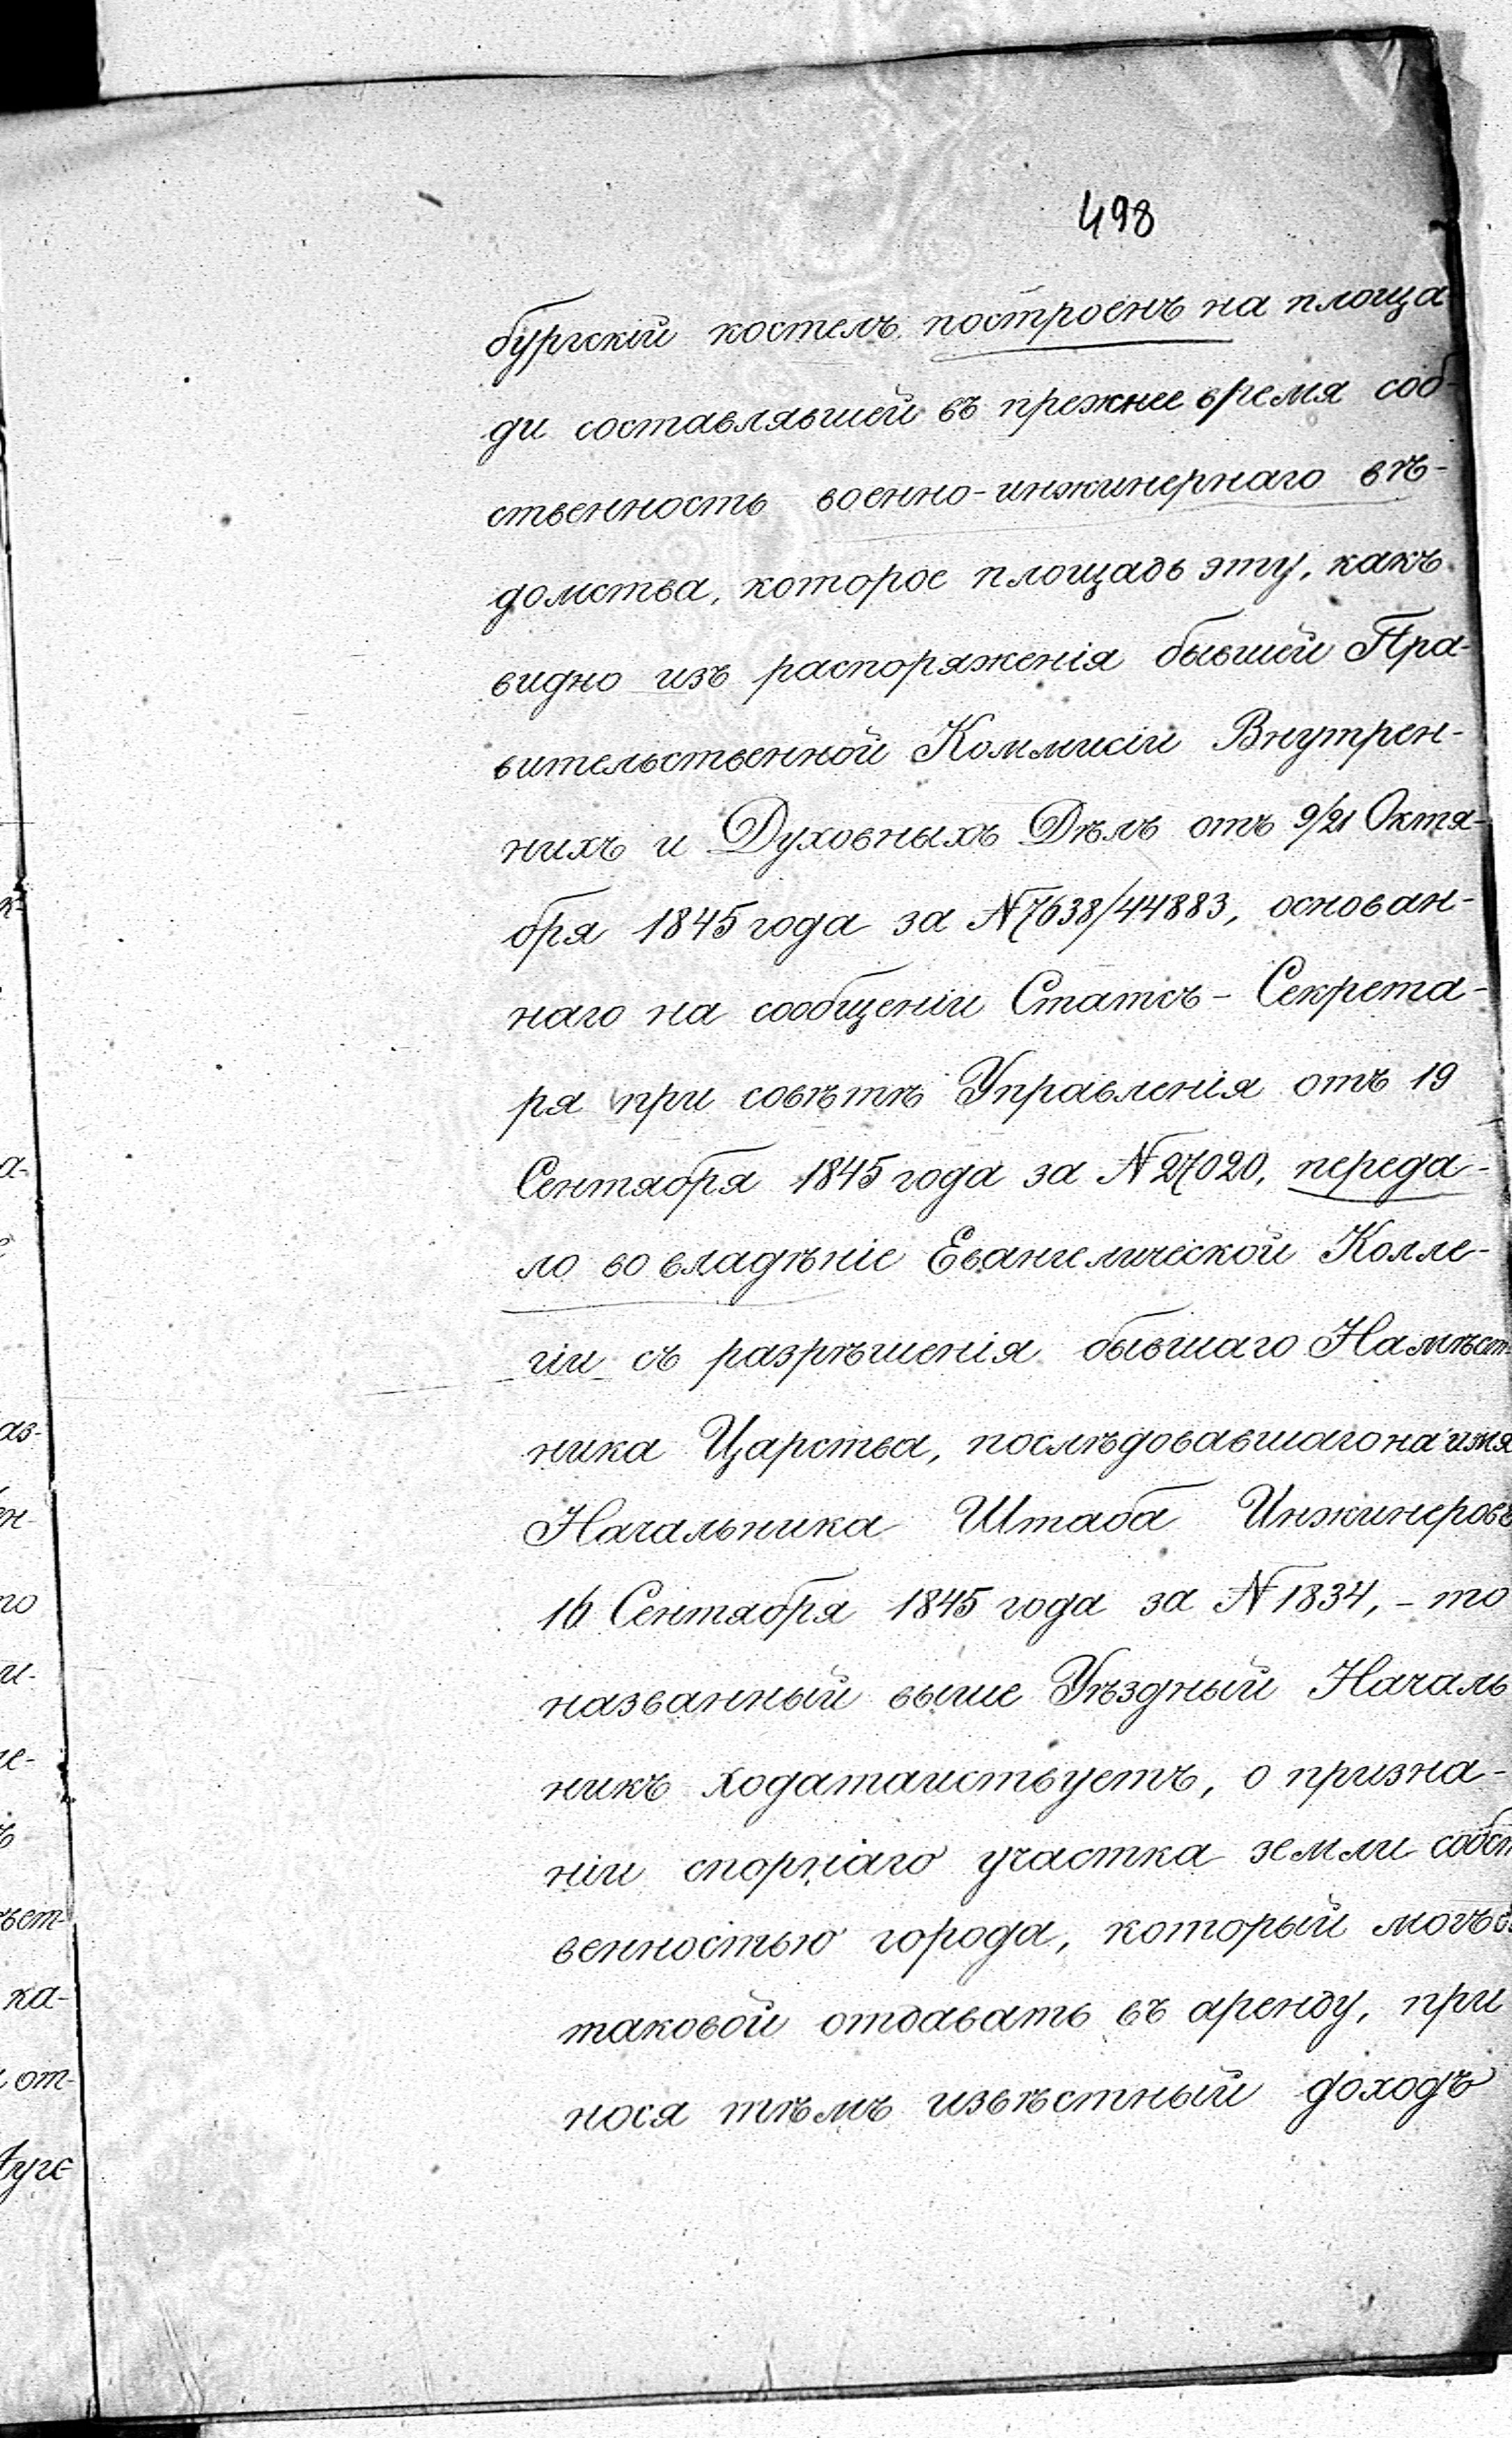 498
бургскій костелъ построенъ на площа-
ди составлявшей въ прежнее время соб-
ственность военно-инжинернаго вѣ-
домства, которое площадь эту, какъ
видно изъ распоряженія бывшей Пра-
вительственной Коммисіи Внутрен-
нихъ и Духовныхъ Дѣлъ отъ 9/21 Октя-
бря 1845 года за №7638/44883, основан-
наго на сообщеніи Статсъ-Секрета-
ря при совѣтѣ Управленія отъ 19
Сентября 1845 года за №27020, переда-
ло во владѣніе Евангелической Колле-
гіи съ разрѣшенія бывшаго Намѣст-
ника Царства, послѣдовавшаго на имя
Начальника Штаба Инжинеровъ
16 Сентября 1845 года за №1834, - то
названный выше Уѣздный Началь
никъ ходатаиствуетъ, о призна-
ніи спорнаго участка земли собст
венностью города, который могъ
таковой отдавать въ аренду, при
нося тѣмъ извѣстный доходъ
к-
а-
аз-
ен-
го
и-
ѣст-
ка-
от-